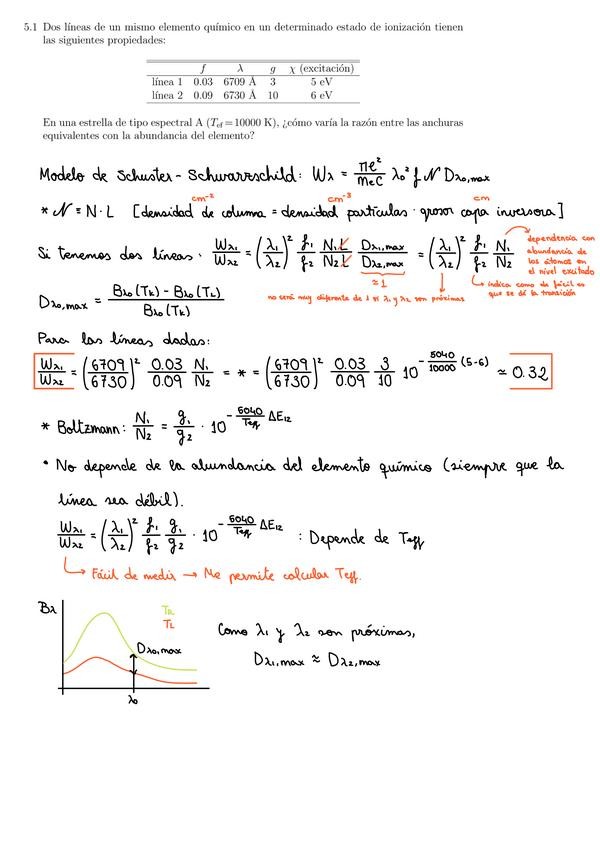 5.1 Dos líneas de un mismo elemento químico en un determinado estado de ionización tienen
las siguientes propiedades:
f λ g χ (excitación)
línea 1 0.03 6709 Å 3 5 eV
línea 2 0.09 6730 Å 10 6 eV
En una estrella de tipo espectral A (T_ef = 10000 K), ¿cómo varía la razón entre las anchuras
equivalentes con la abundancia del elemento?
Modelo de Schuster-Schwarzschild: Wλ = πe²/mec λ0² f N Dλ0,max
cm⁻² cm⁻³ cm
* N = N·L [densidad de columna = densidad partículas · grosor capa inversora]
Si tenemos dos líneas: Wλ1/Wλ2 = (λ1/λ2)² f1/f2 N1L/N2L Dλ1,max/Dλ2,max = (λ1/λ2)² f1/f2 N1/N2
≃ 1
no será muy diferente de 1 si λ1 y λ2 son próximas
dependencia con
abundancia de
los átomos en
el nivel excitado
indica como de fácil es
que se dé la transición
Dλ0,max = Bλ0(TR) - Bλ0(TL) / Bλ0(TR)
Para las líneas dadas:
Wλ1/Wλ2 = (6709/6730)² 0.03/0.09 N1/N2 = * = (6709/6730)² 0.03/0.09 3/10 10^(-5040/10000 (5-6)) ≃ 0.32
* Boltzmann: N1/N2 = g1/g2 · 10^(-5040/Teff ΔE12)
• No depende de la abundancia del elemento químico (siempre que la
línea sea débil).
Wλ1/Wλ2 = (λ1/λ2)² f1/f2 g1/g2 · 10^(-5040/Teff ΔE12) : Depende de Teff
Fácil de medir → Me permite calcular Teff.
Bλ
TR
TL
Dλ0,max
λ0
Como λ1 y λ2 son próximas,
Dλ1,max ≈ Dλ2,max